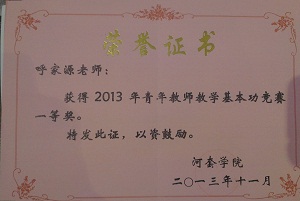 荣誉证书
呼家源老师：
获得2013年青年教师教学基本功竞赛
一等奖。
特发此证，以资鼓励。
河套学院
二〇一三年十一月